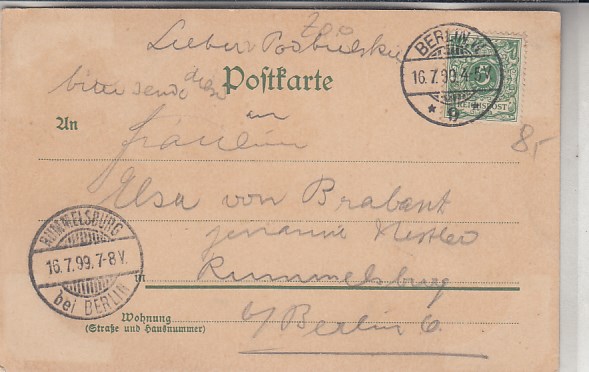 Lieber Podbielski
bitte sende dies
Postkarte
an
An
Fräulein
Elsa von Brabant
Rummelsburg
in
b/Berlin 6.
Wohnung
(Straße und Hausnummer)
BERLIN
16.7.99.4-5
* 9 *
5
REICHSPOST
8,-
RUMMELSBURG
16.7.99.7-8V.
bei BERLIN